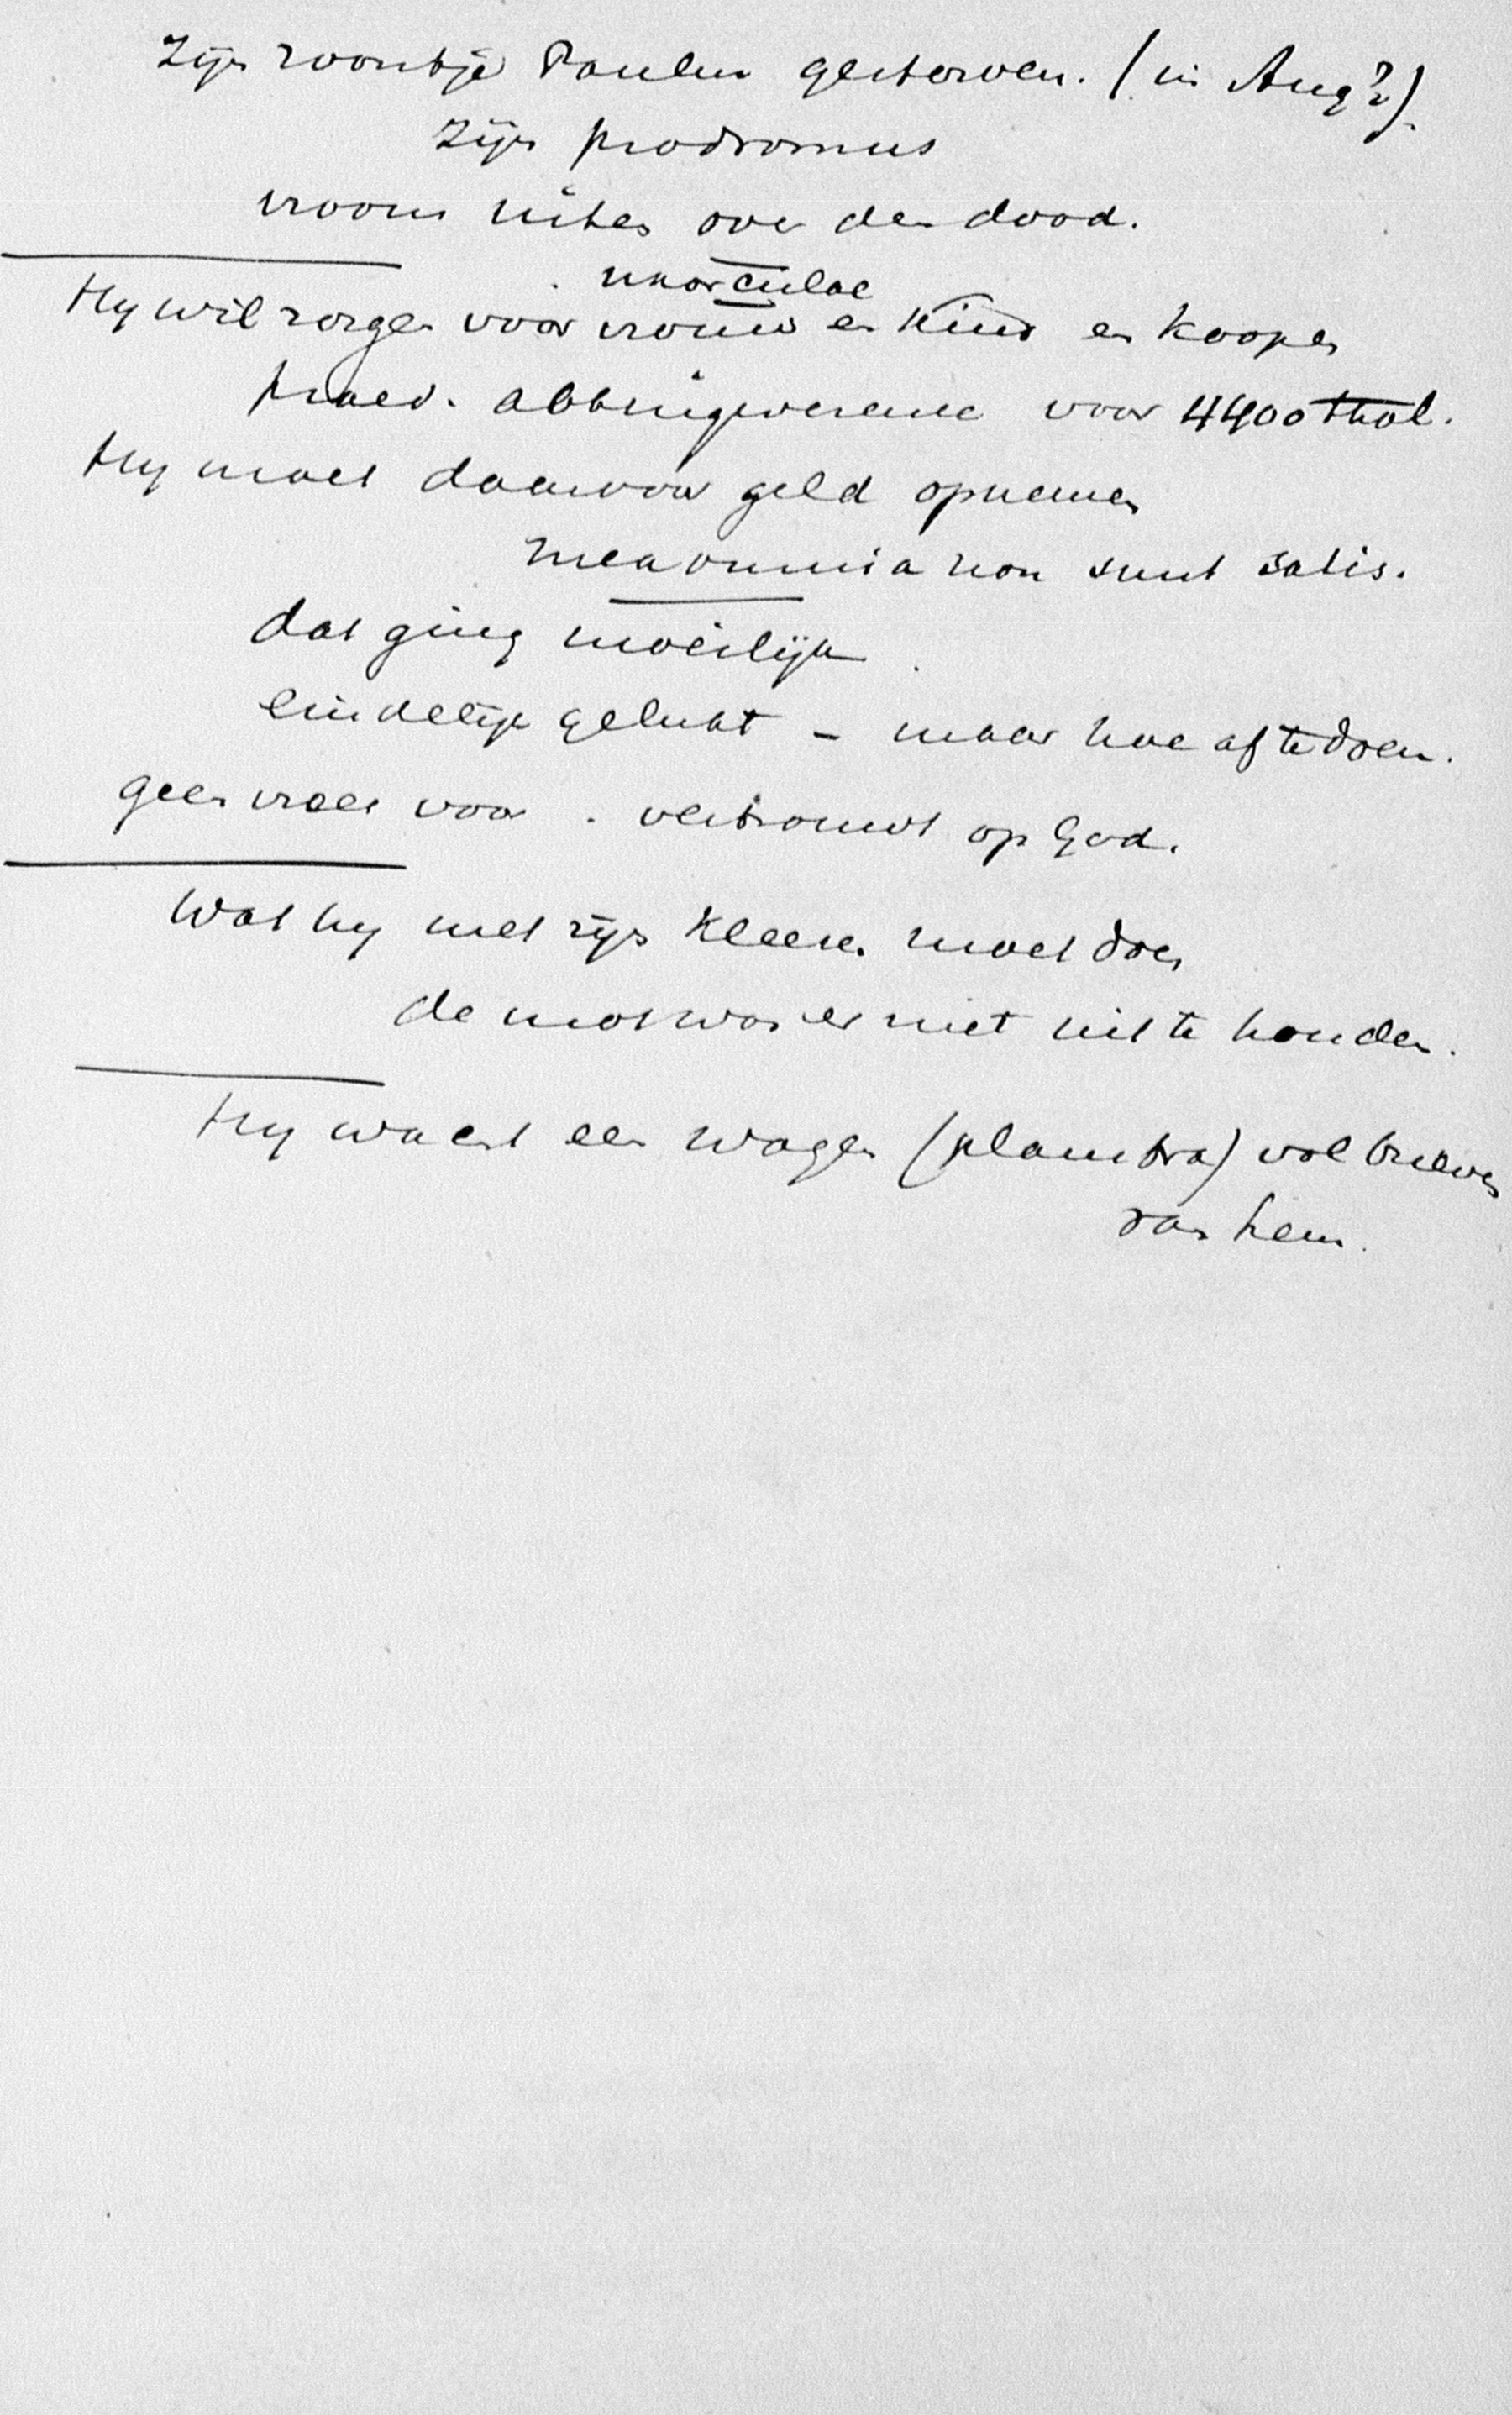 Zijn zoontje Paulus gestorven. (in Aug?).
Zijn prodromus
vroom uiten over den dood.
uxorculae
Hy wil zorgen voor vrouw en kind en koopen
praed. abbingwerense voor 4400 thal.
Hy moet daarvoor geld opnemen
mea omnia non sunt satis.
dat ging moeilijk
eindelijk gelukt – maar hoe af te doen.
geen vrees voor . vertrouwt op God.
Wat hy met zijn kleeren moet doen
de mot was er niet uit te houden.
Hy wacht een wagen (plaustra) vol brieven
van hem.